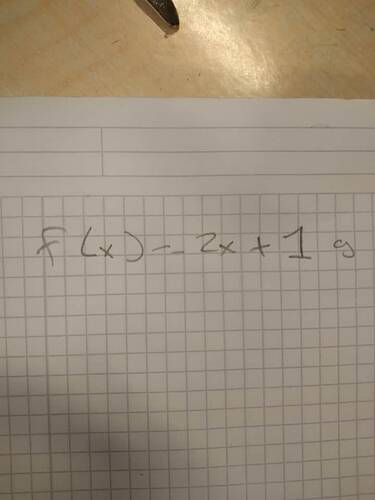 f(x) = 2x + 1 g